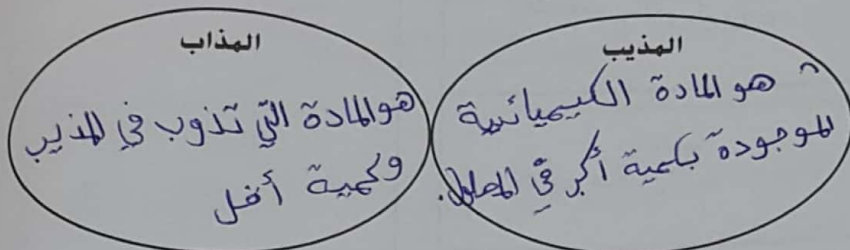 المذيب
هو المادة الكيميائية
الموجودة بكمية أكبر في المحلول.
المذاب
هو المادة التي تذوب في المذيب
وكمية أقل